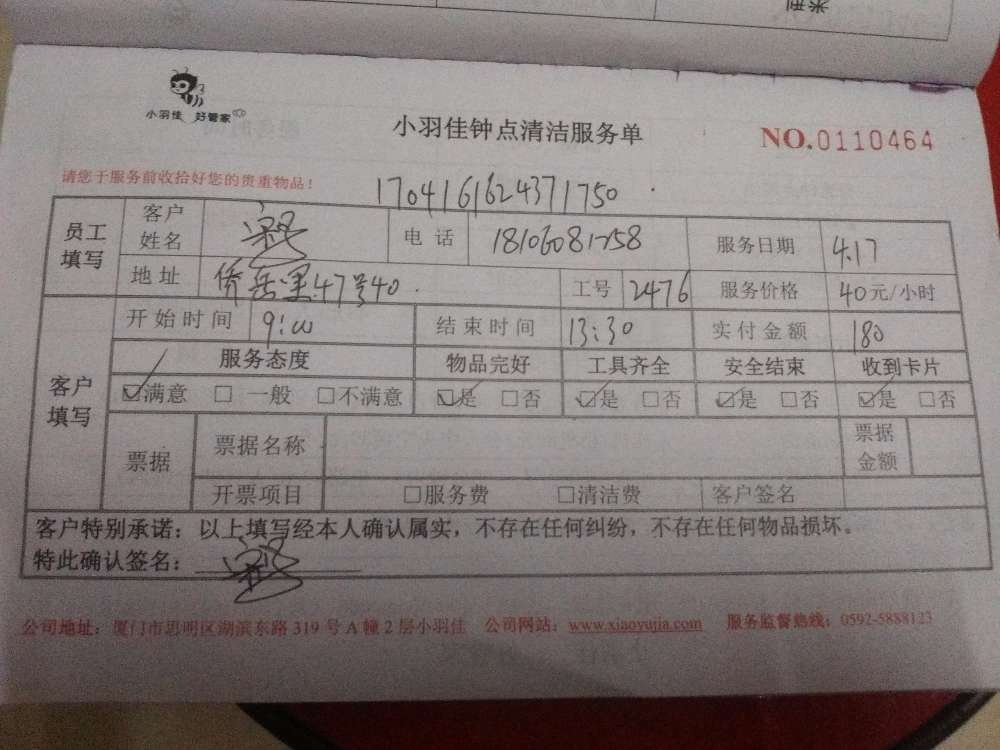 米型
小羽佳 好管家
小羽佳钟点清洁服务单
NO.0110464
请您于服务前收拾好您的贵重物品!
1704161624371750
员工填写 客户姓名 电话 18106081758 服务日期 4.17
地址 侨岳里47号40 工号 2476 服务价格 40元/小时
客户填写 开始时间 9:00 结束时间 13:30 实付金额 180
服务态度 物品完好 工具齐全 安全结束 收到卡片
☑满意 □一般 □不满意 ☑是 □否 ☑是 □否 ☑是 □否 ☑是 □否
票据 票据名称 票据金额
开票项目 □服务费 □清洁费 客户签名
客户特别承诺:以上填写经本人确认属实,不存在任何纠纷,不存在任何物品损坏。
特此确认签名:
公司地址:厦门市思明区湖滨东路319号A幢2层小羽佳 公司网站:www.xiaoyujia.com 服务监督热线:0592-5888123